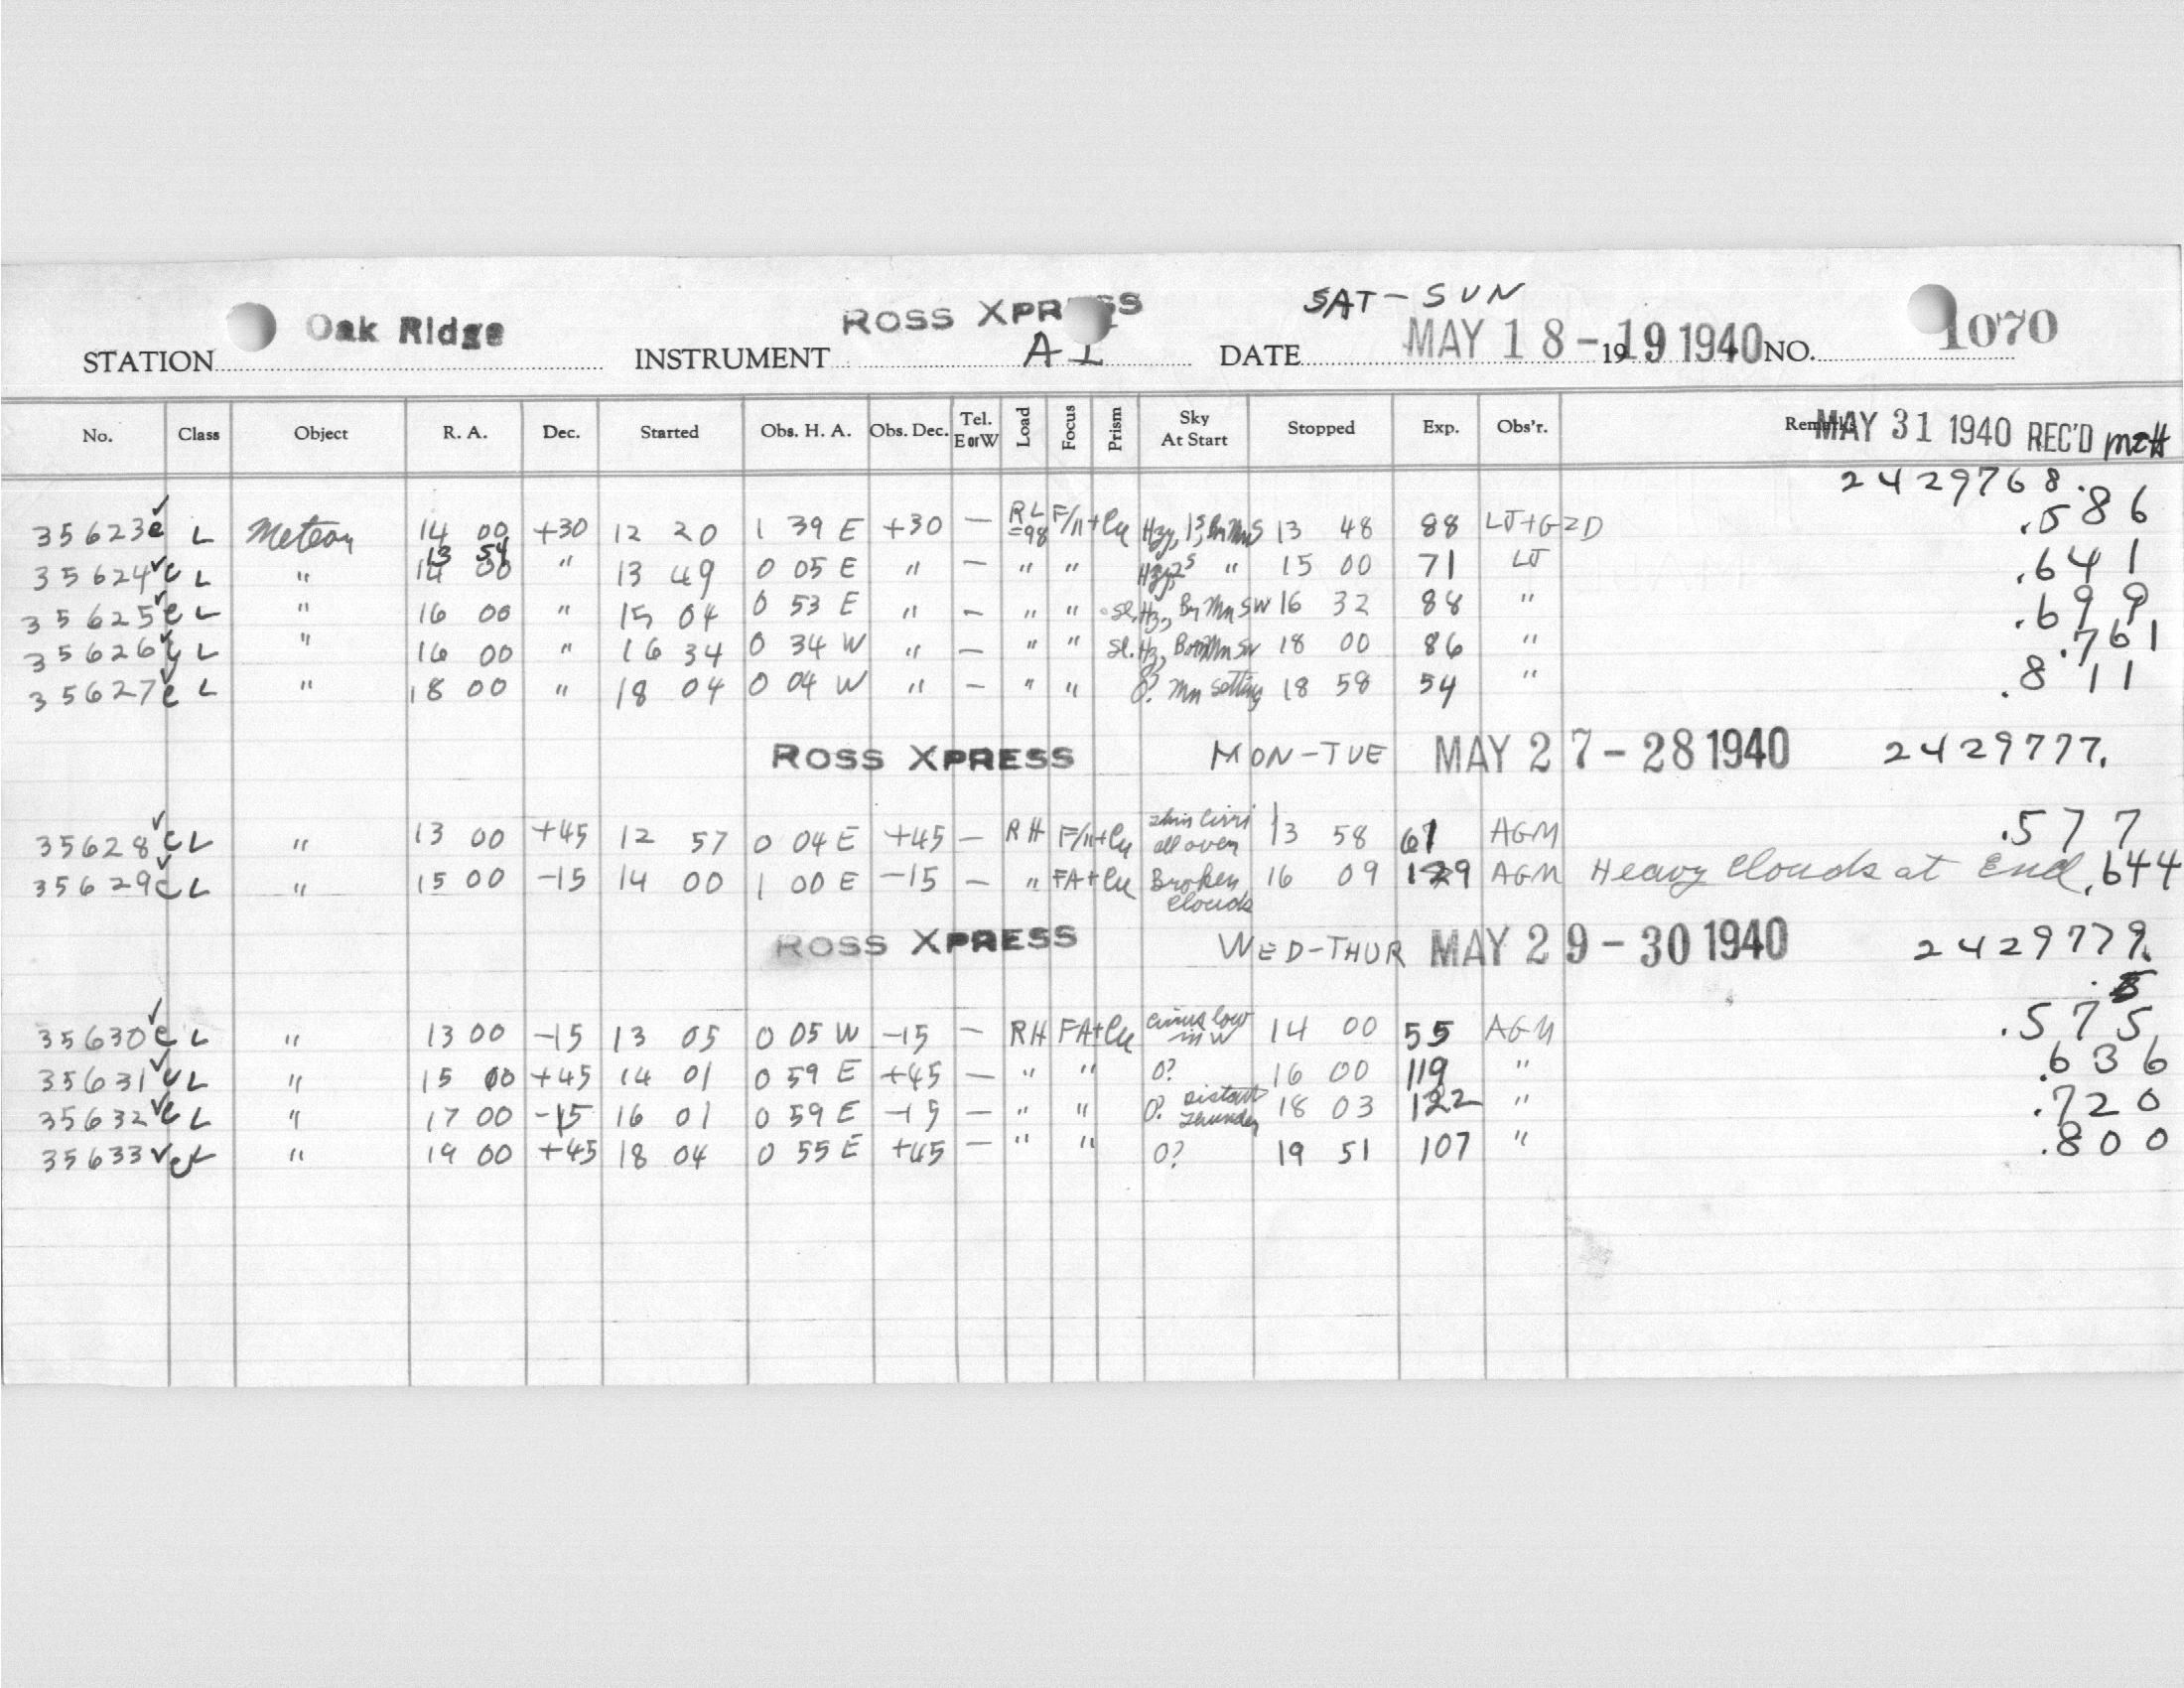 SAT - SUN
STATION Oak Ridge INSTRUMENT ROSS XPRESS AI DATE MAY 18-19 19 1940 NO. 1070
No. Class Object R. A. Dec. Started Obs. H. A. Obs. Dec. Tel. E or W Load Focus Prism Sky At Start Stopped Exp. Obs'r. Remarks MAY 31 1940 REC'D
2429768.
35623 L Meteor 14 00 +30 12 20 1 39 E +30 — RL =98 F/11+Cu Hzy, 13 48 88 LJ+GZD .586
13 54
35624 L " 14 00 " 13 49 0 05 E " — " " Hzy, " 15 00 71 LJ .641
35625 L " 16 00 " 15 04 0 53 E " — " " Sl. Hz, Br Mn SW 16 32 88 " .699
35626 L " 16 00 " 16 34 0 34 W " — " " Sl. Hz, Mn SW 18 00 86 " .761
35627 L " 18 00 " 18 04 0 04 W " — " " 0? Mn setting 18 58 54 " .811
ROSS XPRESS MON-TUE MAY 27-28 1940 2429777.
35628 L " 13 00 +45 12 57 0 04 E +45 — RH F/11+Cu thin cirri all over 13 58 61 AGM .577
35629 L " 15 00 -15 14 00 1 00 E -15 — " FA+Cu Broken clouds 16 09 129 AGM Heavy clouds at End .644
ROSS XPRESS WED-THUR MAY 29-30 1940 2429779.
35630 L " 13 00 -15 13 05 0 05 W -15 — RH FA+Cu cirrus low in W 14 00 55 AGM .575
35631 L " 15 00 +45 14 01 0 59 E +45 — " " 0? 16 00 119 " .636
35632 L " 17 00 -15 16 01 0 59 E -15 — " " 0? Distant Thunder 18 03 122 " .720
35633 L " 19 00 +45 18 04 0 55 E +45 — " " 0? 19 51 107 " .800